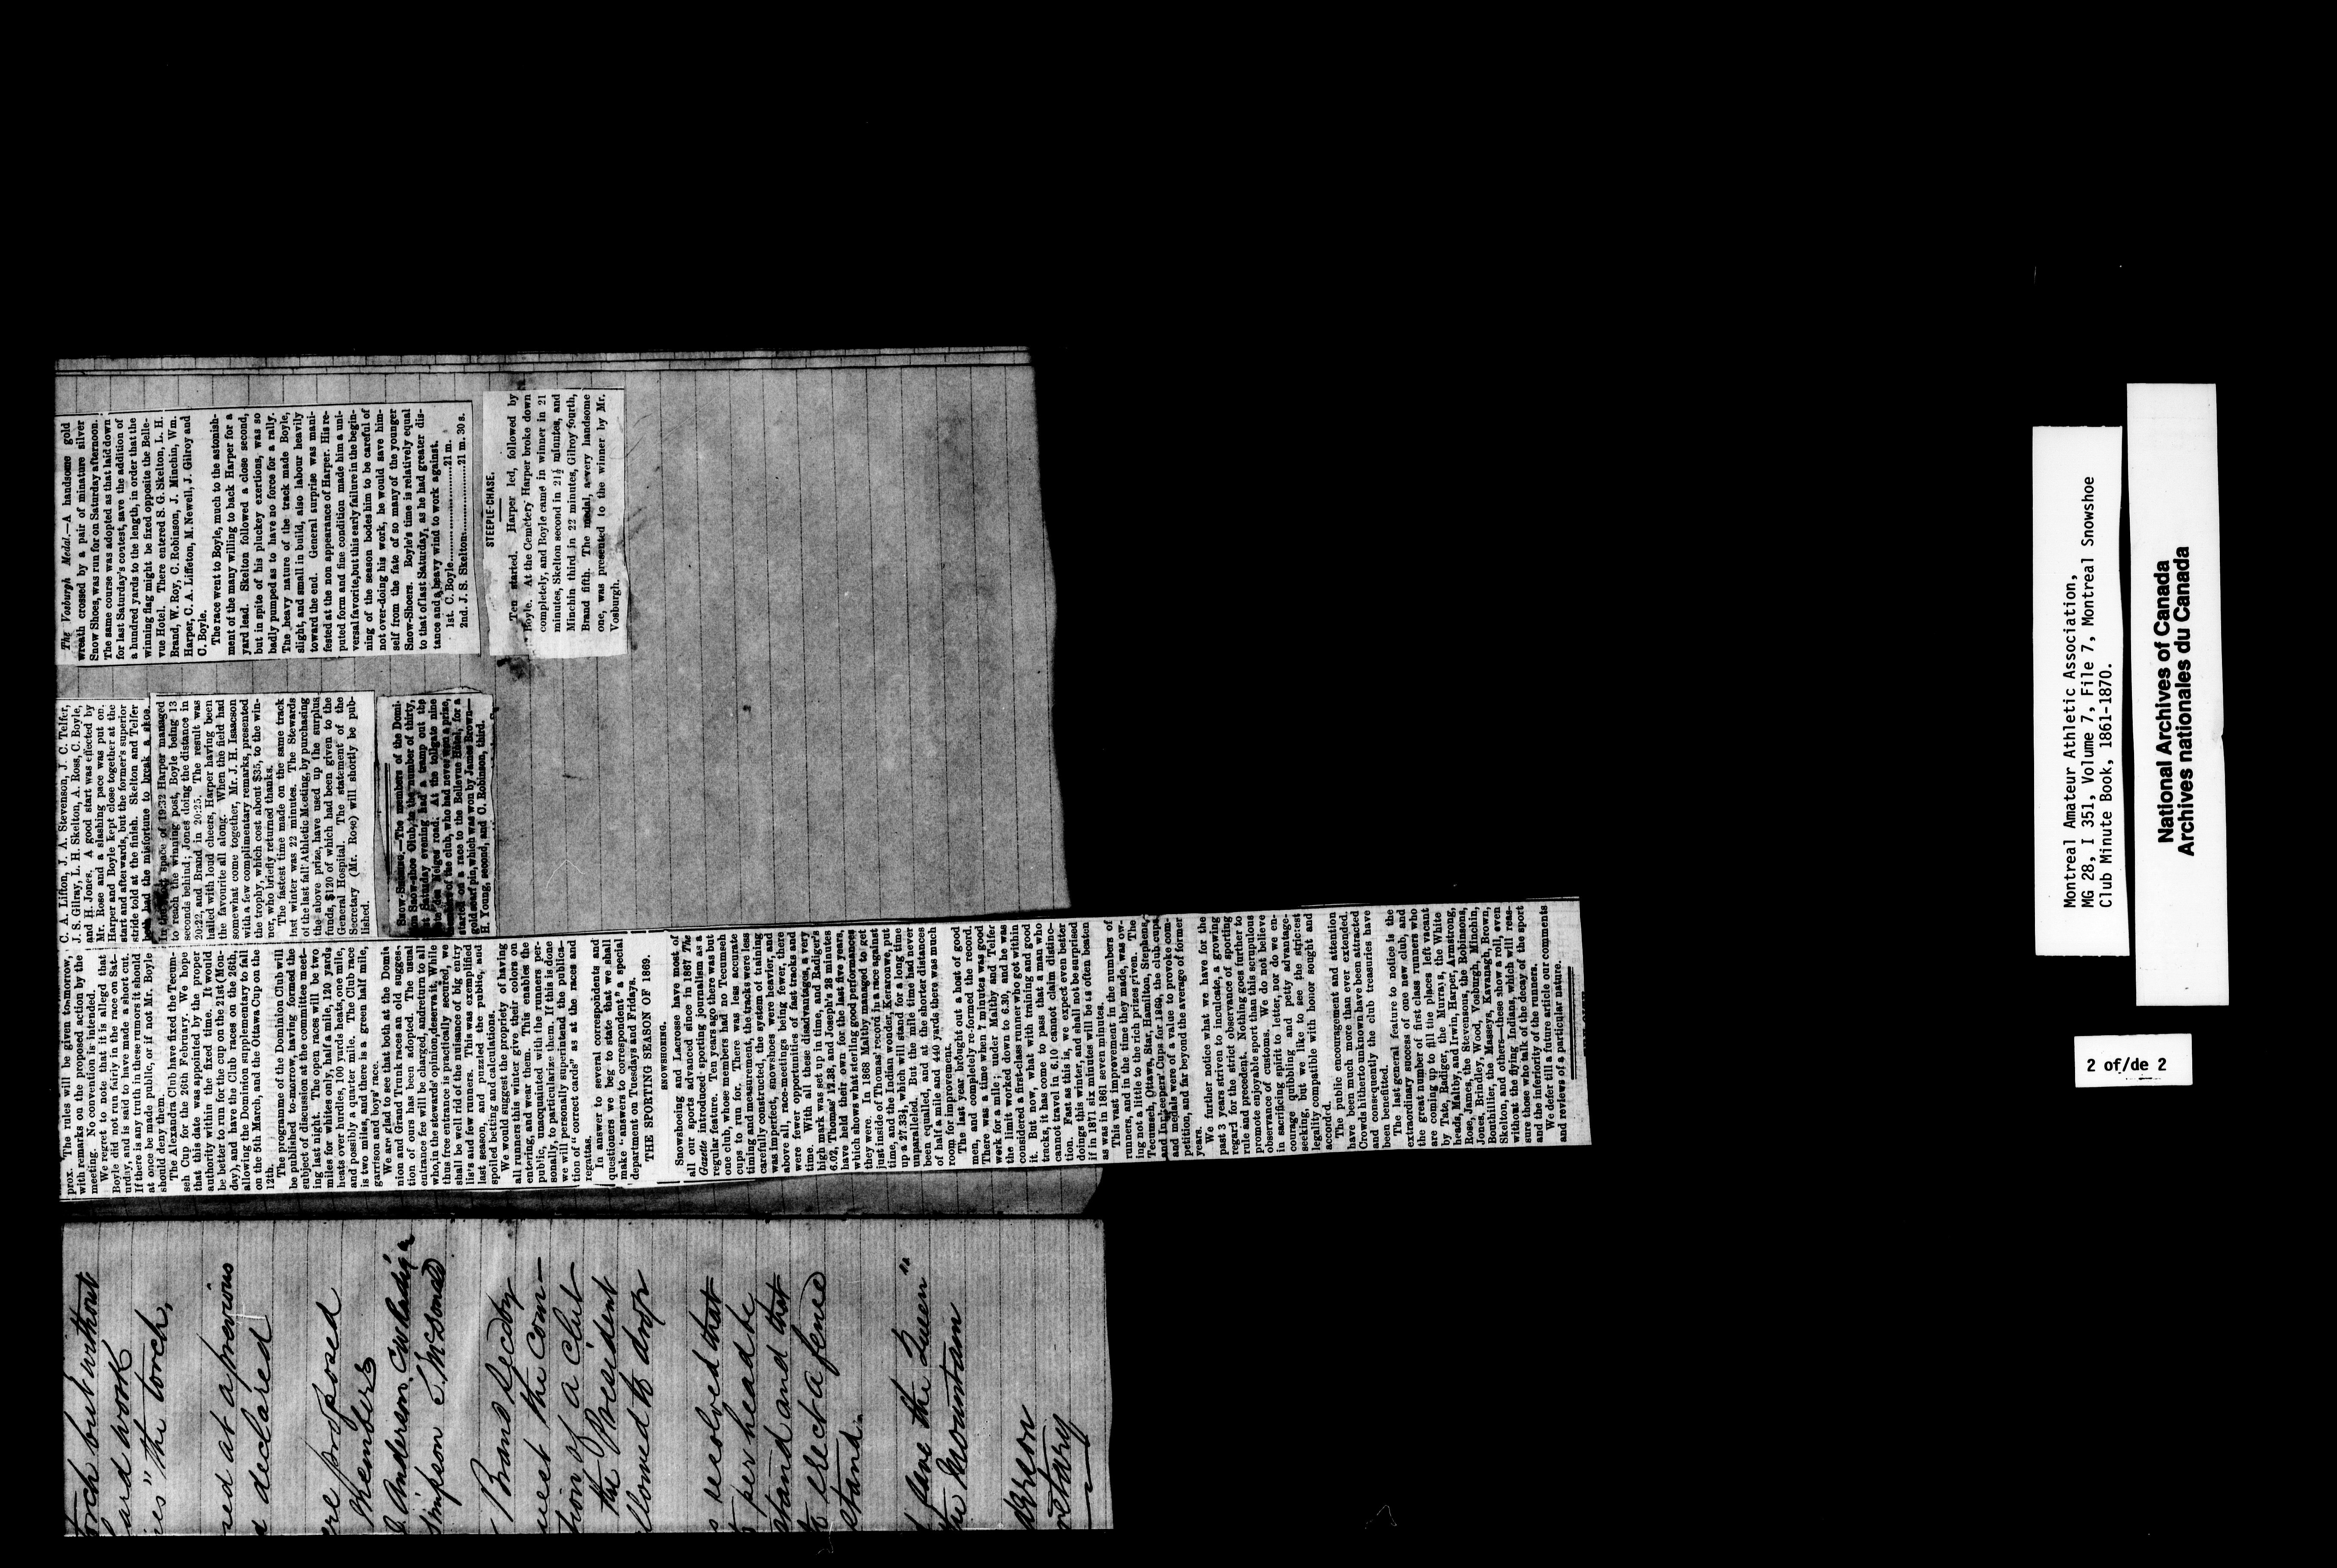 torch but without
ard work
"the torch,
sed at a previous
declared
re proposed
Members
Anderson
Simpson S. McDonald
Brand Secdy
uest the Com-
tion of a Club
the President
llowed to drop
resolved that
per head be
stand and that
to erect a fence
stand.
Save the Queen"
the Mountain
retary
prox. The rules will be given to-morrow,
with remarks on the proposed action by the
meeting. No convention is intended.
We regret to note that it is alleged that
Boyle did not run fairly in the race on Sat-
urday, and is said to have made a short cut.
If there is any truth in these rumors it should
at once be made public, or if not Mr. Boyle
should deny them.
The Alexandra Club have fixed the Tecum-
seh Cup for the 26th February. We hope
that this date was appointed by the proper
authority within the fixed time. It would
be better to run for the cup on the 21st (Mon-
day), and have the Club races on the 26th,
allowing the Dominion supplementary to fall
on the 5th March, and the Ottawa Cup on the
12th.
The programme of the Dominion Club will
be published to-morrow, having formed the
subject of discussion at the committee meet-
ing last night. The open races will be two
miles for whites only, half a mile, 120 yards
heats over hurdles, 100 yards heats, one mile,
and possibly a quarter mile. The Club race
is two miles, and there is a green half mile,
garrison and boys' race.
We are glad to see that both at the Domi-
nion and Grand Trunk races an old sugges-
tion of ours has been adopted. The usual
entrance fee will be charged, and return to all
who, in the stewards' opinion, deserve it. While
thus free entrance is practically secured, we
shall be well rid of the nuisance of big entry
lists and few runners. This was exemplified
last season, and puzzled the public, and
spoiled betting and calculations.
We would suggest the propriety of having
all runners this winter give their colors on
entering, and wear them. This enables the
public, unacquainted with the runners per-
sonally, to particularize them. If this is done
we will personally superintend the publica-
tion of "correct cards" as at the races and
regattas.
In answer to several correspondents and
questioners we beg to state that we shall
make "answers to correspondent" a special
department on Tuesdays and Fridays.
THE SPORTING SEASON OF 1869.
SNOWSHOEING.
Snowshoeing and Lacrosse have most of
all our sports advanced since in 1867 The
Gazette introduced sporting journalism as a
regular feature. Ten years ago there was but
one club, whose members had no Tecumseh
cups to run for. There was less accurate
timing and measurement, the tracks were less
carefully constructed, the system of training
was imperfect, snowshoes were heavier, and
above all, race-meetings being fewer, there
were fewer opportunities of fast tracks and
time. With all these disadvantages, a very
high mark was set up in time, and Radiger's
6.02, Thomas' 17.38, and Joseph's 28 minutes
have held their own for the last five years,
which shows what sterling good performances
they were. In 1868 Maltby managed to get
just inside of Thomas' record in a race against
time, and the Indian wonder, Keraronwe, put
up a 27.33½, which will stand for a long time
unparalleled. But the mile time had never
been equalled, and at the shorter distances
of half a mile and 440 yards there was much
room for improvement.
The last year brought out a host of good
men, and completely re-formed the record.
There was a time when 7 minutes was good
work for a mile; under Maltby and Telfer
the limit worked down to 6.30, and he was
considered a first-class runner who got within
it. But now, what with training and good
tracks, it has come to pass that a man who
cannot travel in 6.10 cannot claim distinc-
tion. Fast as this is, we expect even better
doings this winter, and shall not be surprised
if in 1871 six minutes will be as often beaten
as was in 1861 seven minutes.
This vast improvement in the numbers of
runners, and in the time they made, was ow-
ing not a little to the rich prizes given. The
Tecumseh, Ottawa, Star, Hamilton, Stephens,
and Innkeepers' Cups for 1869, the club cups,
and medals were of a value to provoke com-
petition, and far beyond the average of former
years.
We further notice what we have for the
past 3 years striven to inculcate, a growing
regard for the strict observance of sporting
rule and precedent. Nothing goes further to
promote enjoyable sport than this scrupulous
observance of customs. We do not believe
in sacrificing spirit to letter, nor do we en-
courage quibbling and petty advantage-
seeking, but we like to see the strictest
legality compatible with honor sought and
accord.
The public encouragement and attention
have been much more than ever extended.
Crowds hitherto unknown have been attracted
and consequently the club treasuries have
been benefitted.
The last general feature to notice is the
extraordinary success of one new club, and
the great number of first class runners who
are coming up to fill the places left vacant
by Tate, Radiger, the Murrays, the White
heads, Maltby, and Irwin, Harper, Armstrong,
Rose, James, the Stevensons, the Robinsons,
Jones, Brindley, Wood, Vosburgh, Minchin,
Bouthillier, the Masseys, Kavanagh, Brown,
Skelton, and others—these show a roll, even
without the flying Indians, which will reas-
sure those who talk of the decay of the sport
and the inferiority of the runners.
We defer till a future article our comments
and reviews of a particular nature.
C. A. Lifton, J. A. Stevenson, J. C. Telfer,
J. S. Gilray, L. H. Skelton, A. Ross, C. Boyle,
and H. Jones. A good start was effected by
Mr. Rose and a slashing pace was put on.
Harper and Boyle kept close together at the
start and afterwards, but the former's superior
stride told at the finish. Skelton and Telfer
both had the misfortune to break a shoe.
In the space of 19:32 Harper managed
to reach the winning post, Boyle being 13
seconds behind; Jones doing the distance in
20:22, and Brand in 20:25. The result was
hailed with loud cheers, Harper having been
the favourite all along. When the field had
somewhat come together, Mr. J. H. Isaacson
with a few complimentary remarks, presented
the trophy, which cost about $35, to the win-
ner, who briefly returned thanks.
The fastest time made on the same track
last winter was 22 minutes. The Stewards
of the last fall Athletic Meeting, by purchasing
the above prize, have used up the surplus
funds, $120 of which had been given to the
General Hospital. The statement of the
Secretary (Mr. Rose) will shortly be pub-
lished.
—The members of the Domi-
nion Snow-shoe Club, to the number of thirty,
on Saturday evening had a tramp out the
Cote des Neiges road. At the tollgate nine
members of the club, who had never won a prize,
started on a race to the Bellevue Hotel, for a
gold scarf pin, which was won by James Brown—
H. Young, second, and C. Robinson, third.
The Vosburgh Medal.—A handsome gold
wreath crossed by a pair of minature silver
Snow Shoes, was run for on Saturday afternoon.
The same course was adopted as that laid down
for last Saturday's contest, save the addition of
a hundred yards to the length, in order that the
winning flag might be fixed opposite the Belle-
vue Hotel. There entered S. G. Skelton, L. H.
Brand, W. Roy, C. Robinson, J. Minchin, Wm.
Harper, C. A. Liffeton, M. Newell, J. Gilroy and
C. Boyle.
The race went to Boyle, much to the astonish-
ment of the many willing to back Harper for a
yard lead. Skelton followed a close second,
but in spite of his pluckey exertions, was so
badly pumped as to have no force for a rally.
The heavy nature of the track made Boyle,
slight, and small in build, also labour heavily
toward the end. General surprise was mani-
fested at the non appearance of Harper. His re-
puted form and fine condition made him a uni-
versal favorite, but this early failure in the begin-
ning of the season bodes him to be careful of
not over-doing his work, he would save him-
self from the fate of so many of the younger
Snow-Shoers. Boyle's time is relatively equal
to that of last Saturday, as he had greater dis-
tance and a heavy wind to work against.
1st. C. Boyle..................21 m.
2nd. J. S. Skelton..................21 m. 30 s.
STEEPLE-CHASE.
Ten started. Harper led, followed by
Boyle. At the Cemetery Harper broke down
completely, and Boyle came in winner in 21
minutes, Skelton second in 21½ minutes, and
Minchin third in 22 minutes, Gilroy fourth,
Brand fifth. The medal, a very handsome
one, was presented to the winner by Mr.
Vosburgh.
Montreal Amateur Athletic Association,
MG 28, I 351, Volume 7, File 7, Montreal Snowshoe
Club Minute Book, 1861-1870.
National Archives of Canada
Archives nationales du Canada
2 of/de 2